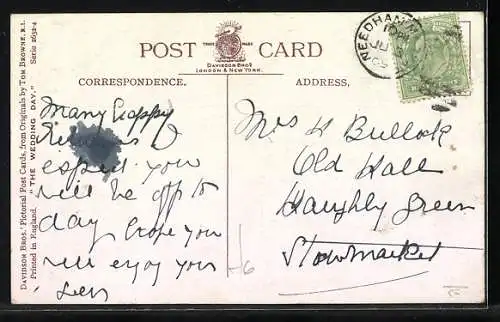 POST CARD
TRADE MARK
DAVIDSON BROS
LONDON & NEW YORK.
CORRESPONDENCE.
ADDRESS,
DAVIDSON BROS.' Pictorial Post Cards, from Originals by TOM BROWNE, R.I.
Serie 2632-4
"THE WEDDING DAY."
Printed in England.
NEEDHAM
JU
Many Happy
Returns
expect you
will be off to
day hope you
will enjoy your
Mrs H Bullock
Old Hall
Haughly Green
Stowmarket